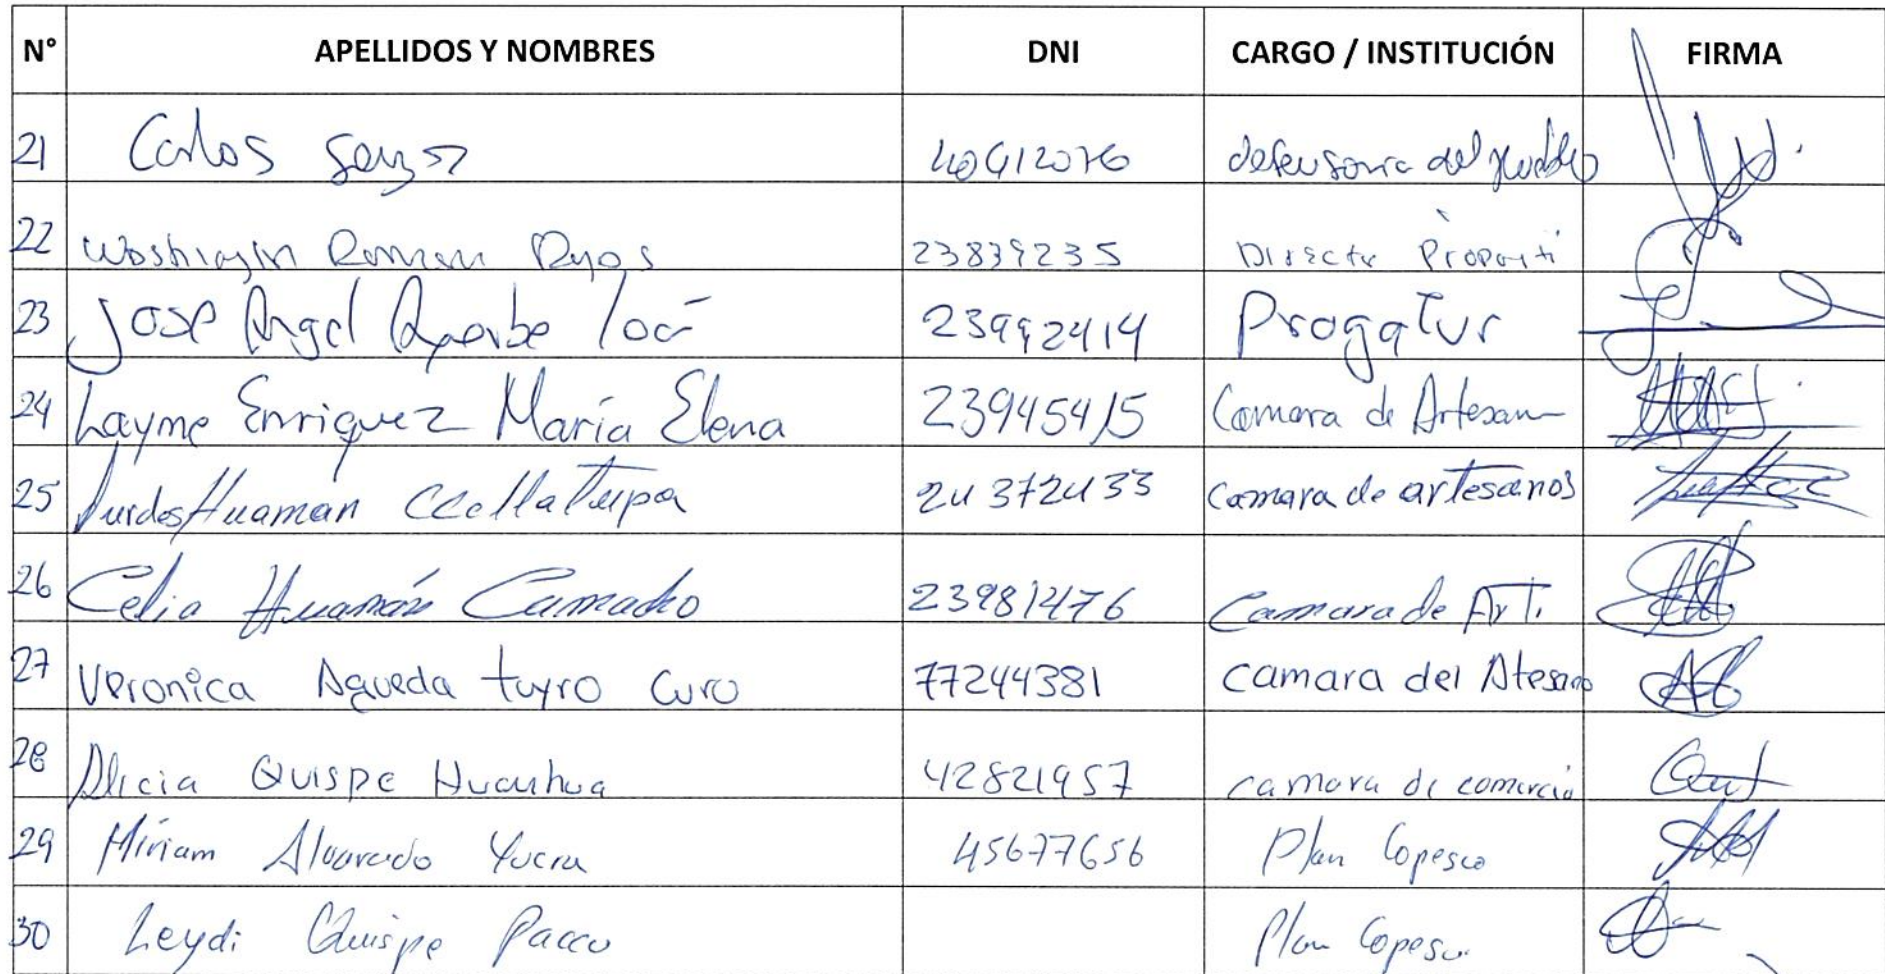 N° APELLIDOS Y NOMBRES DNI CARGO / INSTITUCIÓN FIRMA
21 Carlos 40412076 defensoria del pueblo
22 Washington Roman Rojos 23839235 Directo
23 Jose Angel 23992414 Progatur
24 Layme Enriquez María Elena 23945415 Camara de Artesan
25 Lurdes Huaman Ccollatupa 24372433 Camara de artesanos
26 Celia Huamán Camacho 23981476 Camara de Art.
27 Veronica Agueda tuyro Curo 77244381 camara del Atesano
28 Alicia Quispe Huanhua 42821957 camara de comercio
29 Miriam Alvarado Yucra 45677656 Plan Copesco
30 Leydi Quispe Pacco Plan Copesco